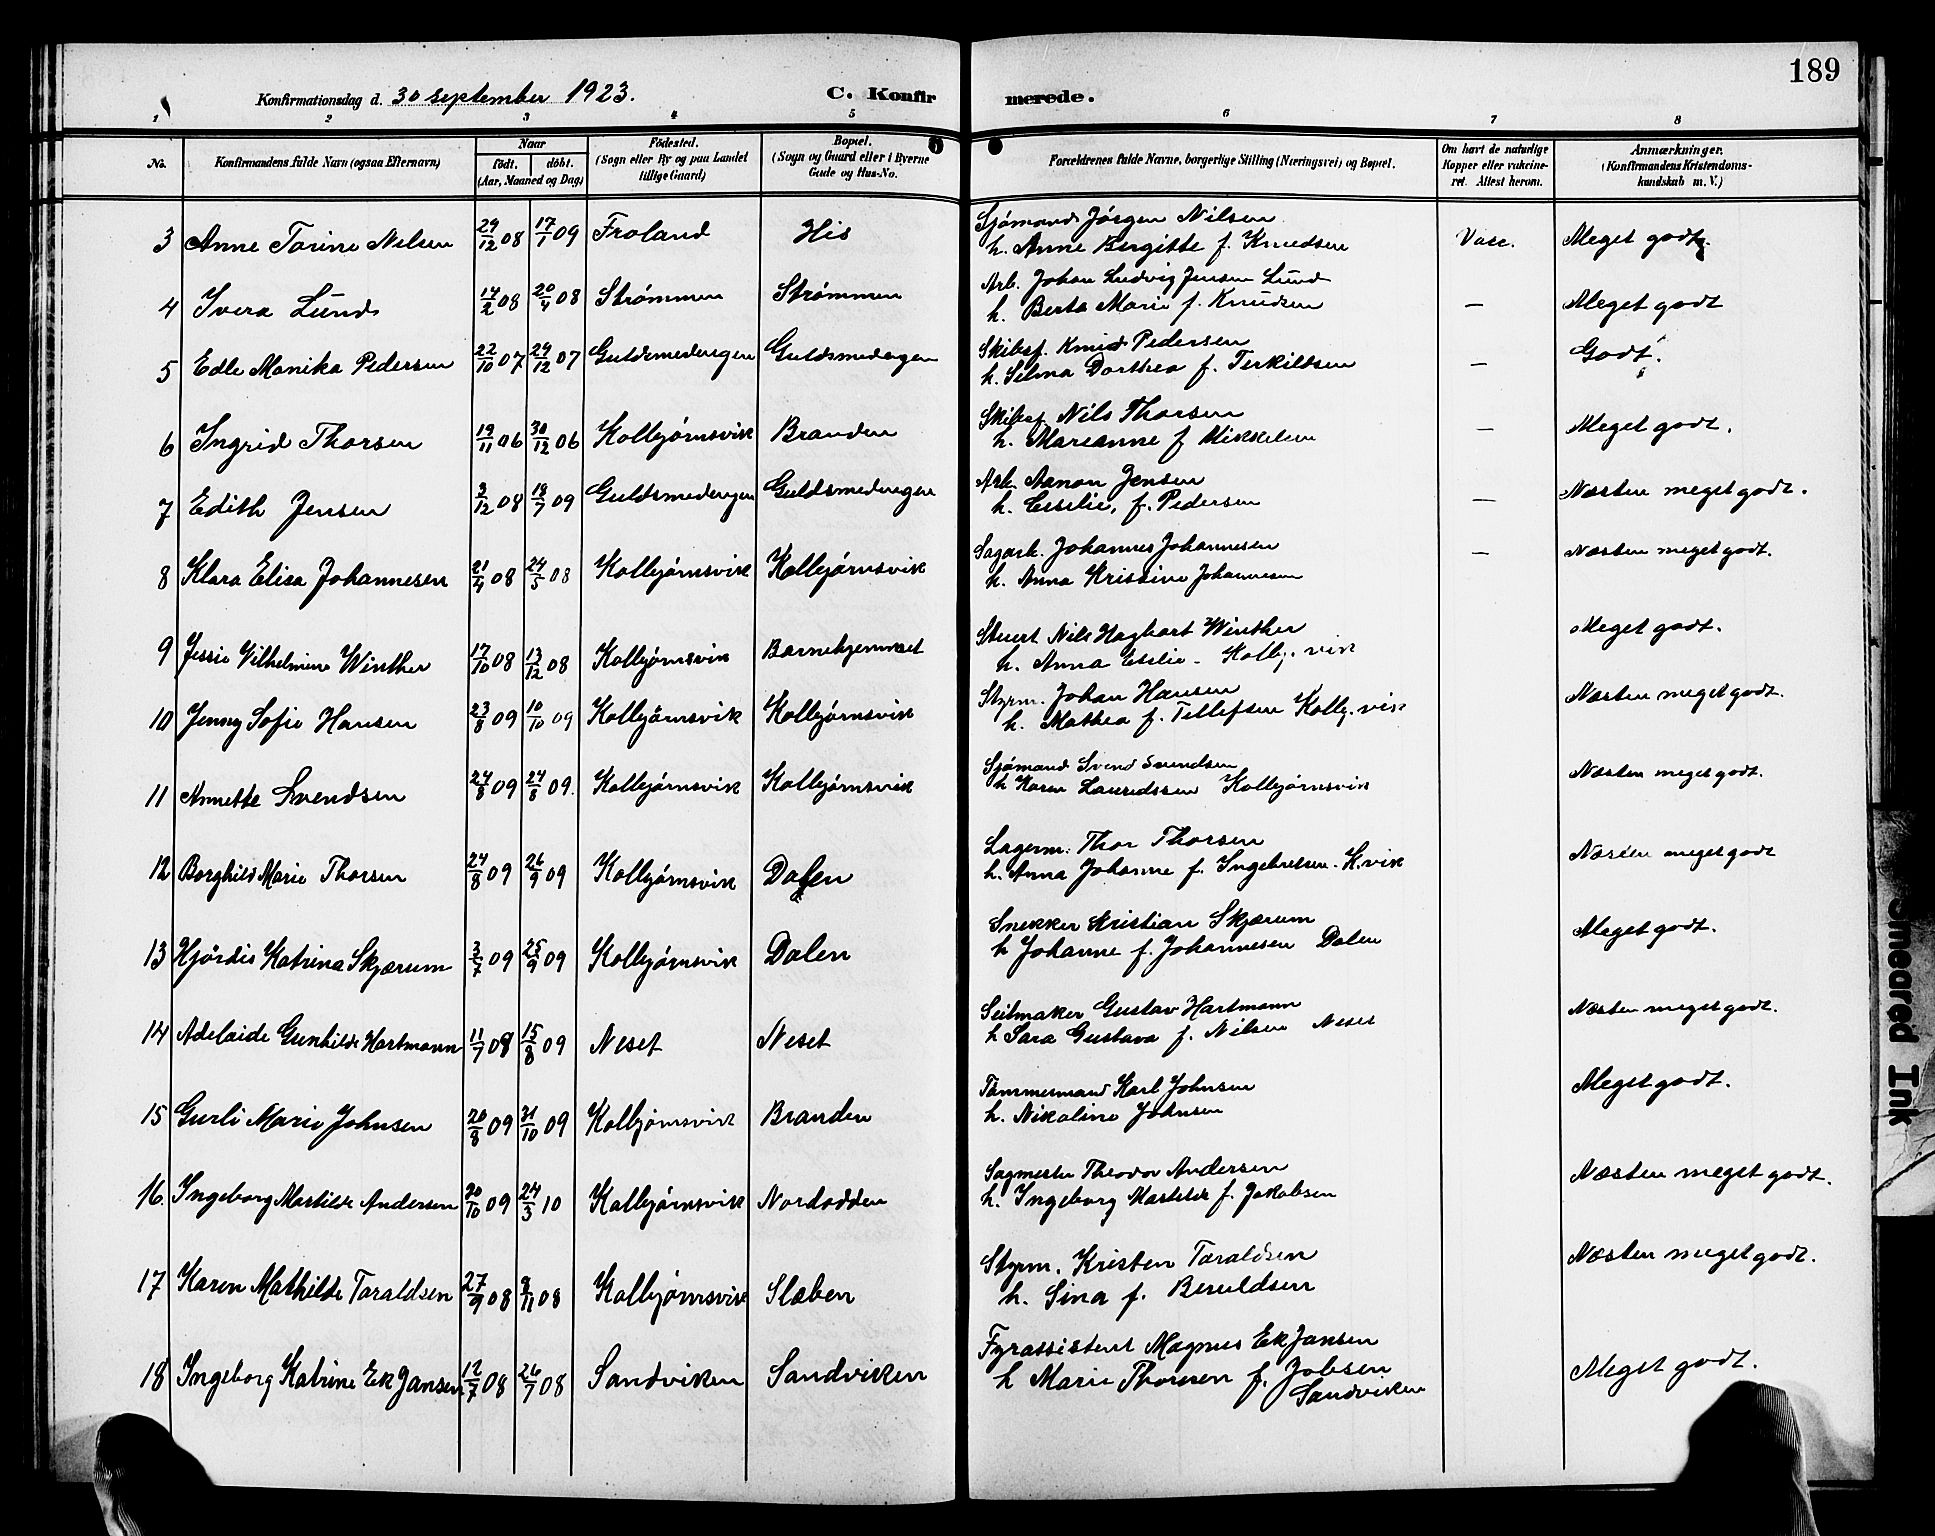 189
Konfirmationsdag d. 30 september 1923. C. Konfirmerede.
1 2 3 4 5 6 7 8
No. Konfirmandens fulde Navn (ogsaa Efternavn) Naar født. døbt. (Aar, Maaned og Dag) Fødested. (Sogn eller By og paa Landet tillige Gaard) Bopæl. (Sogn og Gaard eller i Byerne Gade og Hus-No. Forældrenes fulde Navne, borgerlige Stilling (Næringsvei) og Bopæl. Om havt de naturlige Kopper eller vakcineret. Attest herom. Anmærkninger. (Konfirmandens Kristendomskundskab m. V.)
3 Anne Torine Nilsen 29/12 08 17/1 09 Froland His Sjømand Jørgen Nilsen Vacc. Meget godt.
h. Anne Birgitte f. Knudsen
4 Ivera Lund 14/2 08 20/4 08 Strømmen Strømmen Arb. Johan Ludvig Jensen Lund — Meget godt
h. Berta Marie f. Knudsen
5 Edle Monika Pedersen 22/10 07 29/12 07 Guldsmedengen Guldsmedengen Skibsf. Knud Pedersen — Godt.
h. Selma Dorthea f. Terkildsen
6 Ingrid Thorsen 19/11 06 30/12 06 Kolbjørnsvik Branden Skibsf. Nils Thorsen — Meget godt.
h. Marianne f Mikkelsen
7 Edith Jensen 3/12 08 18/7 09 Guldsmedengen Guldsmedengen Arb. Aanon Jensen — Næsten meget godt.
h. Cecilie, f. Pedersen
8 Klara Elisa Johannesen 21/4 08 24/5 08 Kolbjørnsvik Kolbjørnsvik Sagarb. Johannes Johannesen — Næsten meget godt.
h. Anna Kristine Johannesen
9 Jessie Vilhelmine Winther 17/10 08 13/12 08 Kolbjørnsvik Barnehjemmet Stuert Nils Hagbart Winther Meget godt.
h. Anna Cecilie - Kolbj. vik
10 Jenny Sofie Hansen 23/8 09 10/10 09 Kolbjørnsvik Kolbjørnsvik Styrm. Johan Hansen Næsten meget godt.
h. Mathea f. Tellefsen Kolbj. vik
11 Annette Svendsen 24/8 09 24/8 09. Kolbjørnsvik Kolbjørnsvik Sjømand Svend Svendsen Næsten meget godt.
h Karen Lauridssen Kolbjørnsvik
12 Borghild Marie Thorsen 24/8 09 26/9 09 Kolbjørnsvik Dalen Lagerm. Thor Thorsen Næsten meget godt
h. Anna Johanne f. Ingebretsen. K.vik
13 Hjørdis Katrina Skjærum 3/7 09 25/9 09 Kolbjørnsvik Dalen Snekker Kristian Skjærum Meget godt.
h Johanne f. Johannesen Dalen
14 Adelaide Gunhilde Hartmann 11/7 08 15/8 09 Neset Neset Seilmaker Gustav Hartmann Næsten meget godt.
h Sara Gustava f. Nilsen Neset
15 Gurli Marie Johnsen 20/8 09 31/10 09 Kolbjørnsvik Branden Tømmermand Karl Johnsen Meget godt.
h. Nikoline Johnsen
16. Ingeborg Matilde Andersen 20/10 09 24/3 10 Kolbjørnsvik Nordodden Sagmester Theodor Andersen Næsten meget godt.
h. Ingeborg Matilde f. Jakobsen
17 Karen Mathilde Taraldsen 27/9 08 8/11 08 Kolbjørnsvik Slæben Styrm. Kristen Taraldsen Næsten meget godt.
h. Sina f. Beruldsen
18 Ingeborg Katrine Ek Jansen 12/7 08 26/7 08 Sandviken Sandviken Fyrassistent Magnus Ek Jansen Meget godt.
h Marie Thomsen f. Jobsen
Sandviken
Smeared Ink